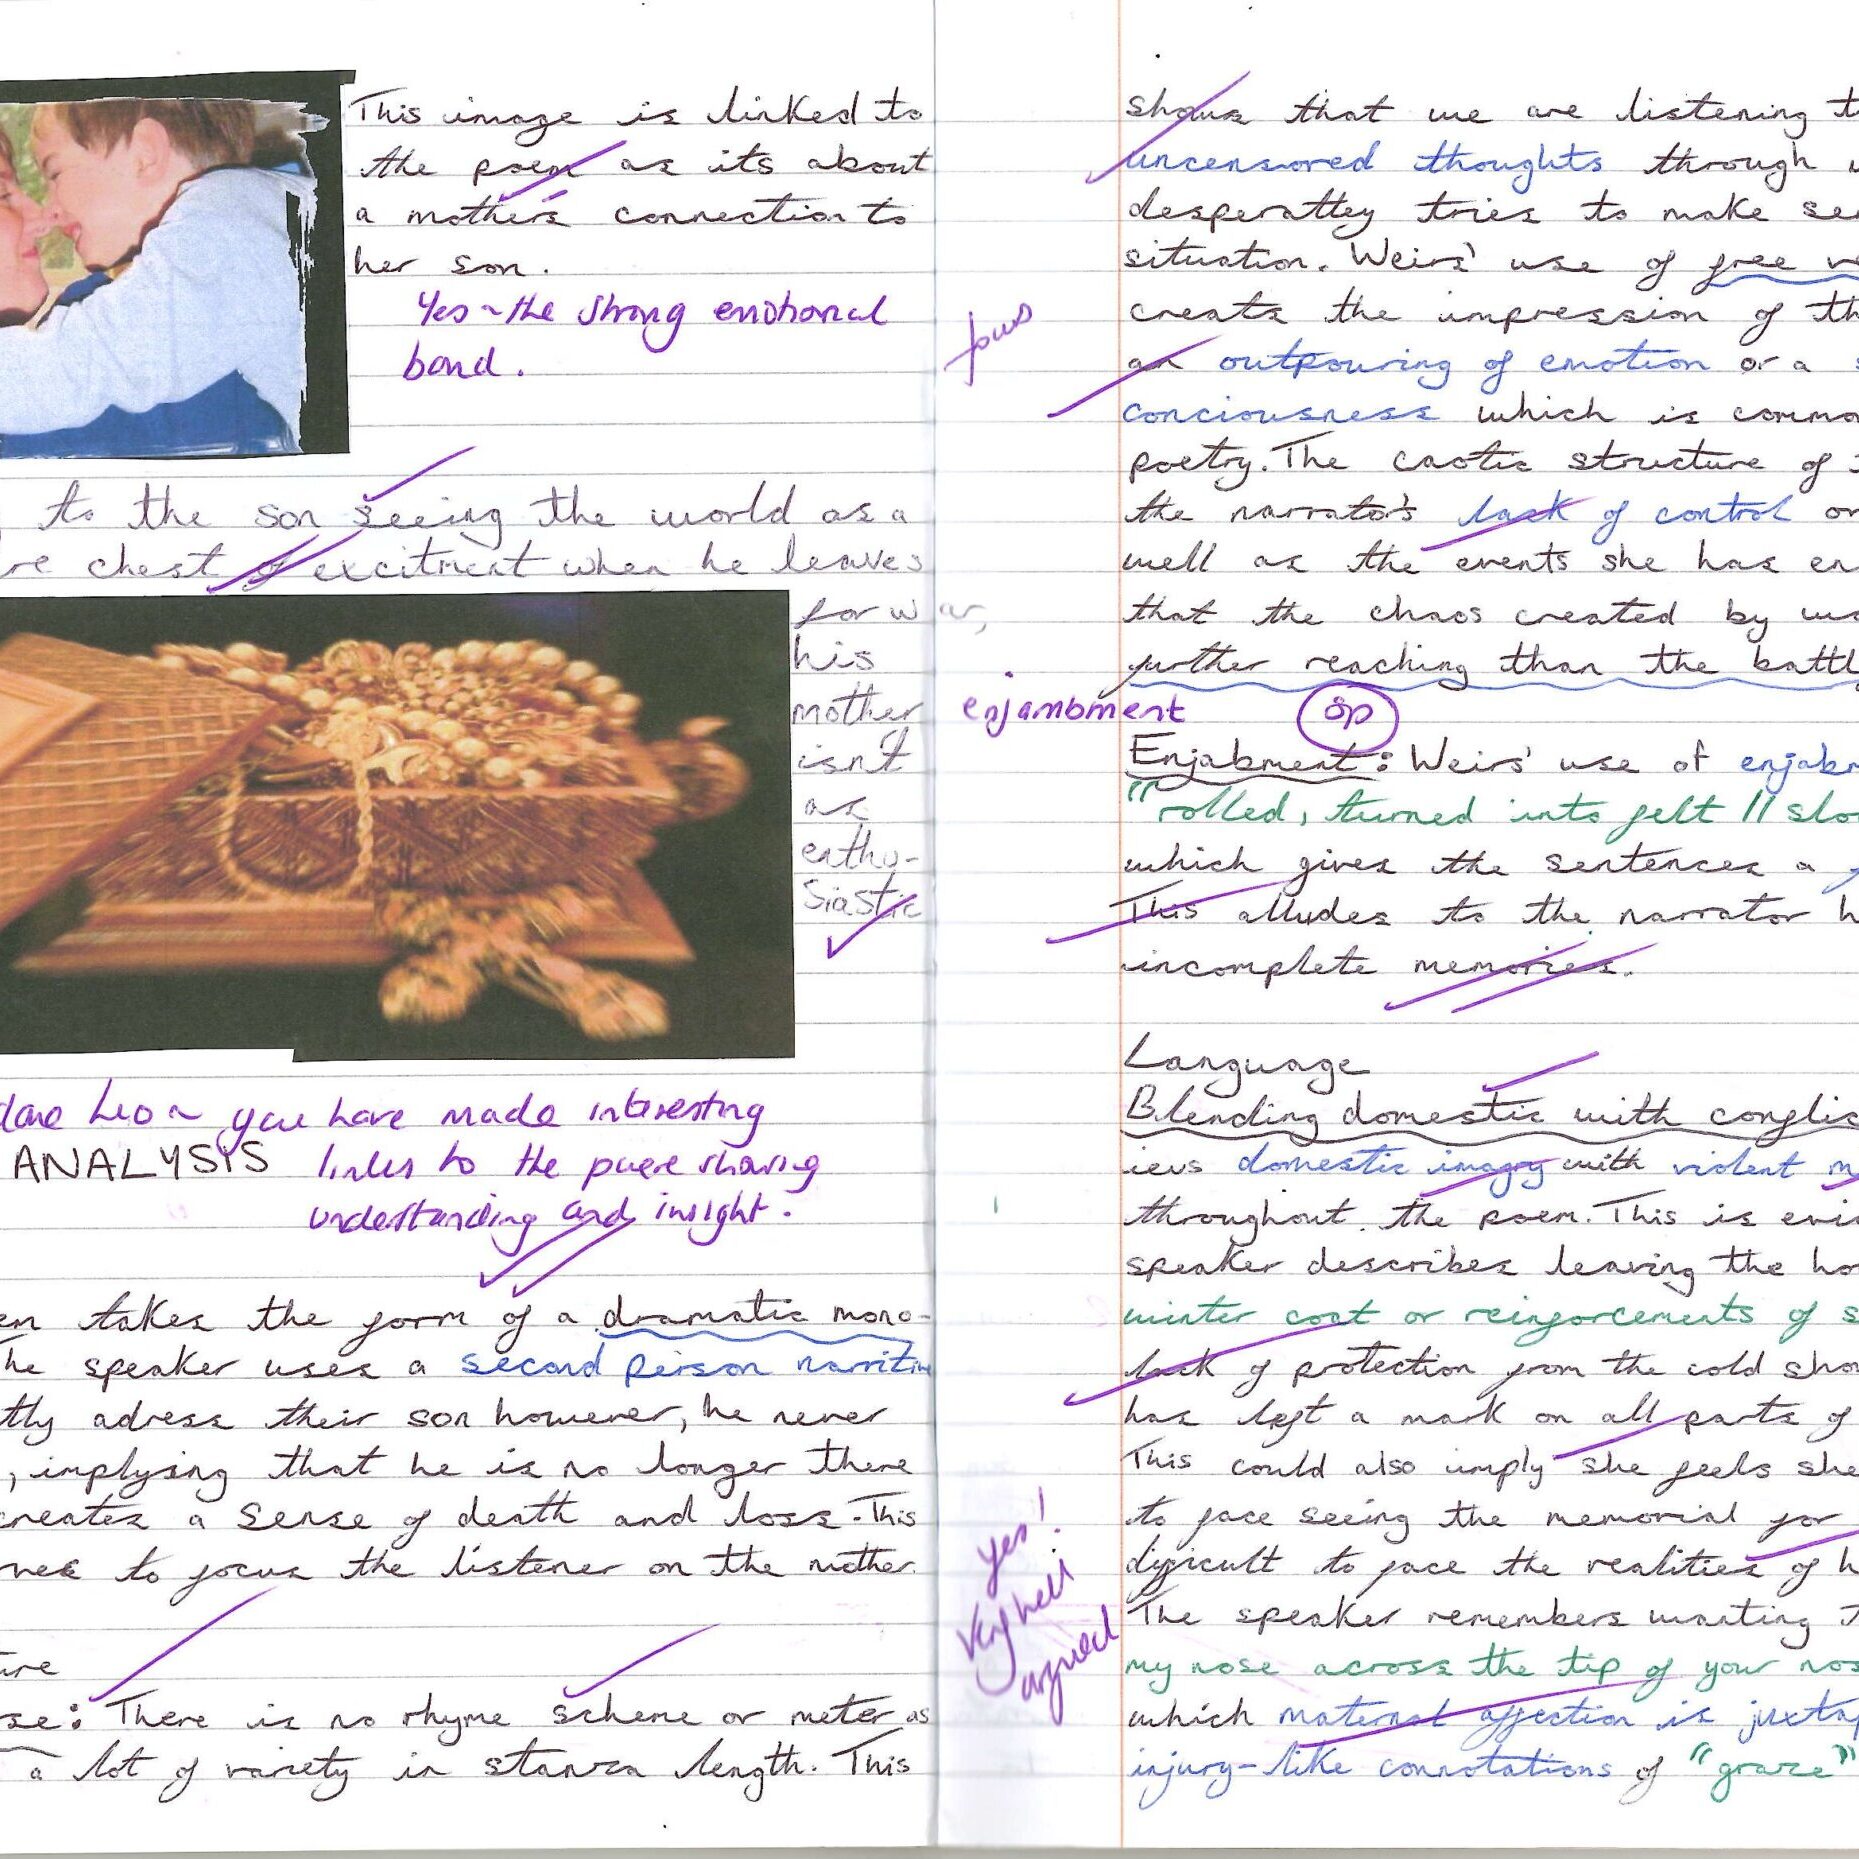 This image is linked to
the poem as its about
a mother's connection to
her son.
Yes ~ the strong emotional
bond.
to the son seeing the world as a
re chest of excitment when he leaves
for war,
his
mother
isnt
as
enthu-
siastic
done Leo ~ you have made interesting
ANALYSIS links to the
understanding and insight.
em takes the form of a dramatic mono-
he speaker uses a second person
tly adress their son however, he never
, implysing that he is no longer there
creates a sense of death and loss. This
rves to focus the listener on the mother.
ure
se: There is no rhyme scheme or meter as
a lot of variety in stanza length. This
shows that we are listening t
uncensored thoughts through
desperatley tries to make se
situation. Weirs' use of free v
creats the impression of th
an outpouring of emotion or a s
conciousness which is commo
poetry. The caotic structure of
the narrator's lack of control or
well as the events she has en
that the chaos created by wa
further reaching than the battl
enjambment sp
Enjabment: Weirs' use of enjabm
"rolled, turned into felt // slo
which gives the sentences a
This alludes to the narrator h
incomplete memories.
Language
Blending domestic with conflic
domestic imagry with violent m
throughout the poem. This is evi
speaker describes leaving the ho
winter coat or reinforcements of s
lack of protection from the cold sho
has left a mark on all parts of
This could also imply she feels she
to face seeing the memorial for
difficult to face the realities of h
The speaker remembers wanting t
my nose across the tip of your nos
which maternal affection is juxtap
injury-like connotations of "graze"
yes!
Very well
argued